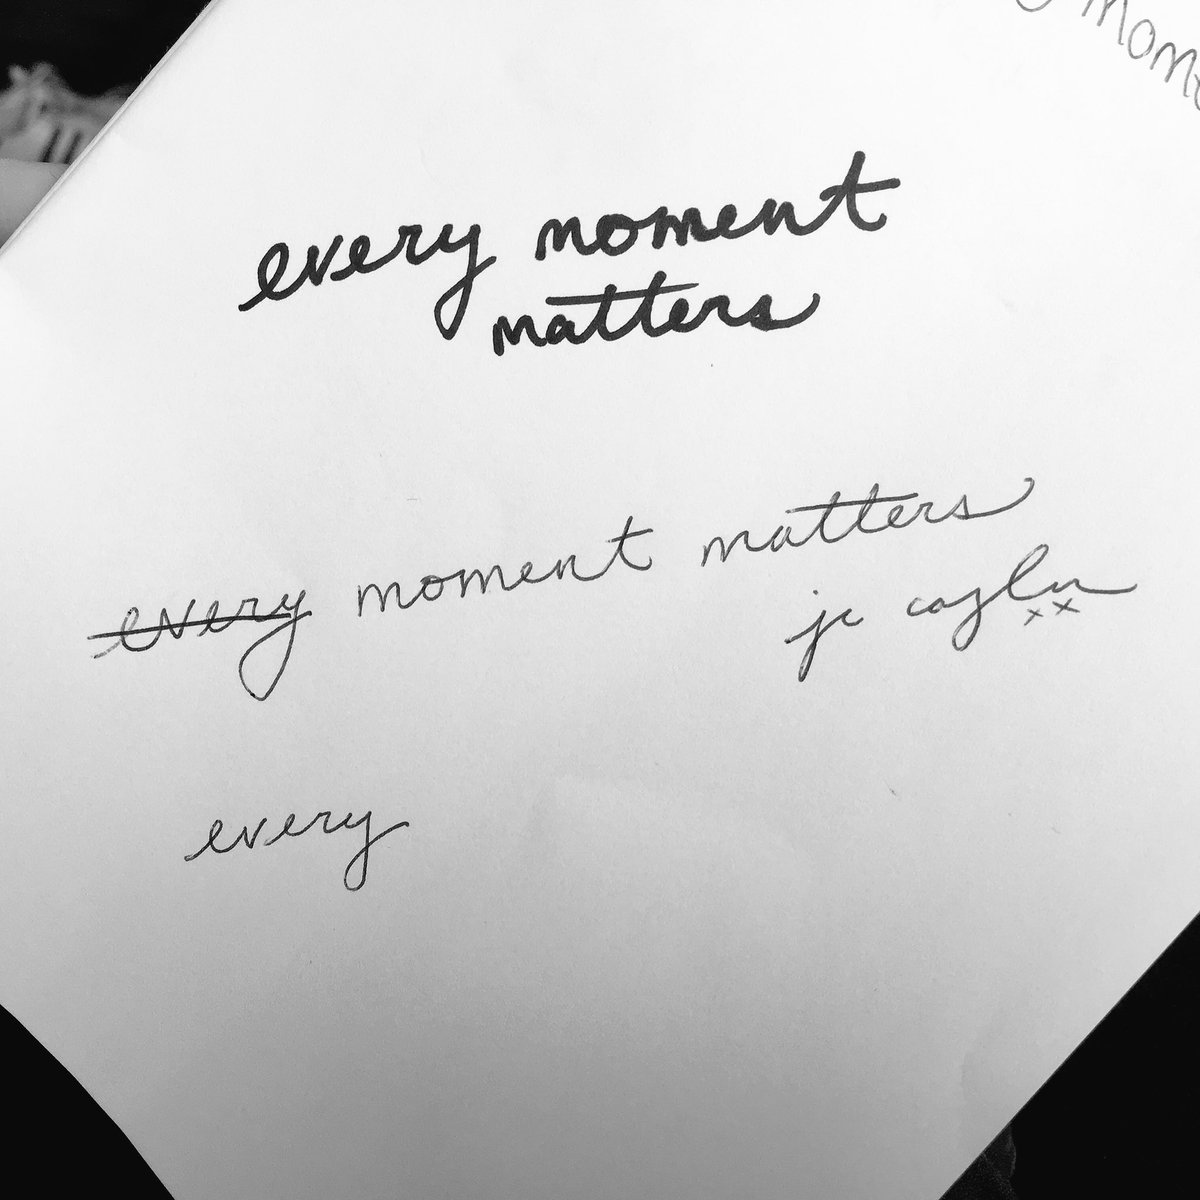 mome
every moment
matters
every moment matters
jc
xx
every